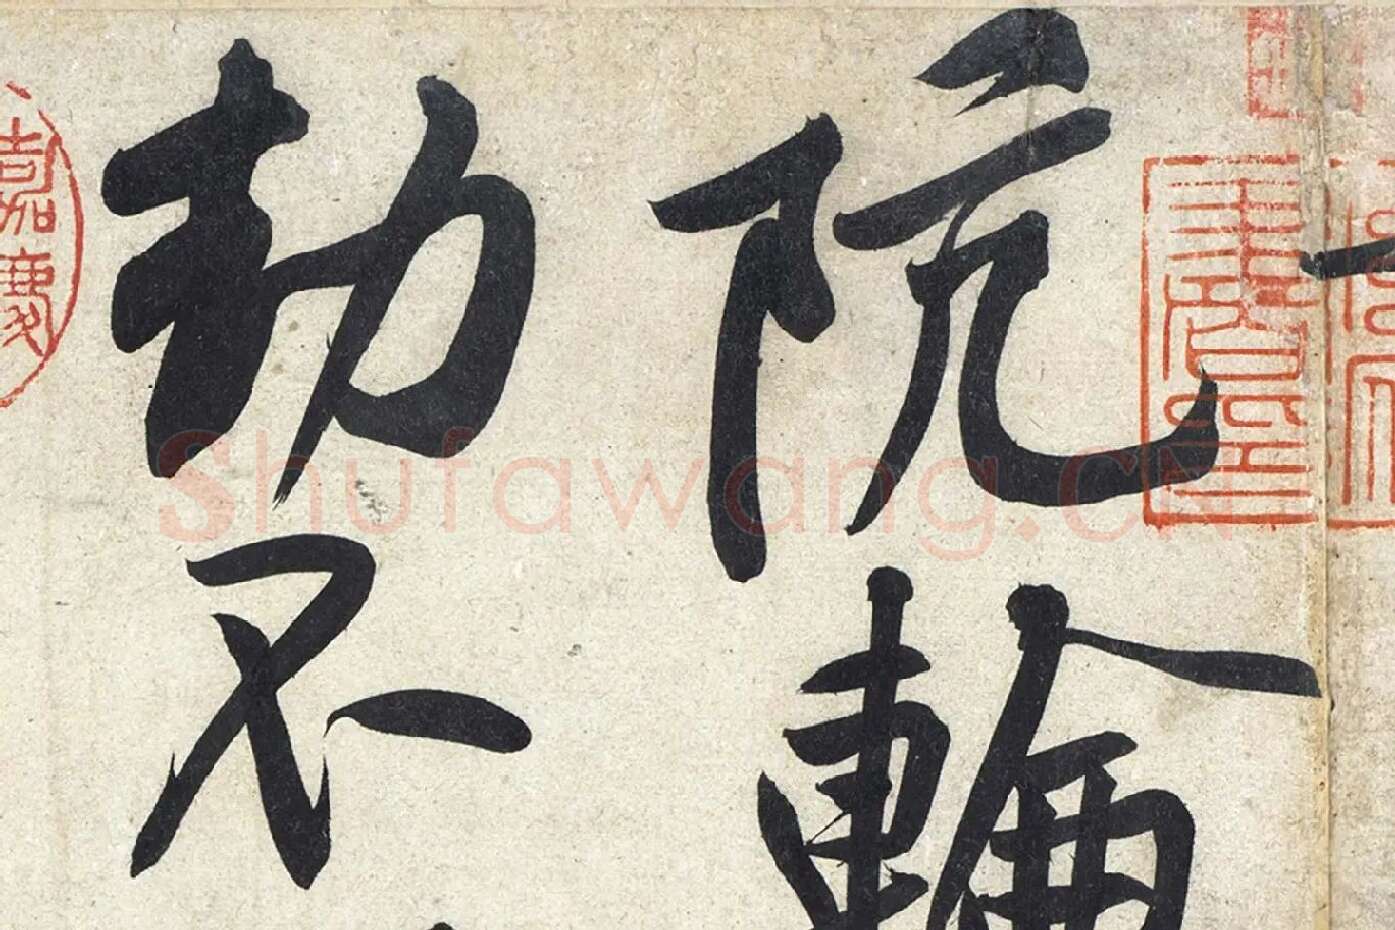 阬輪
劫不
嘉慶
Shufawang.CN